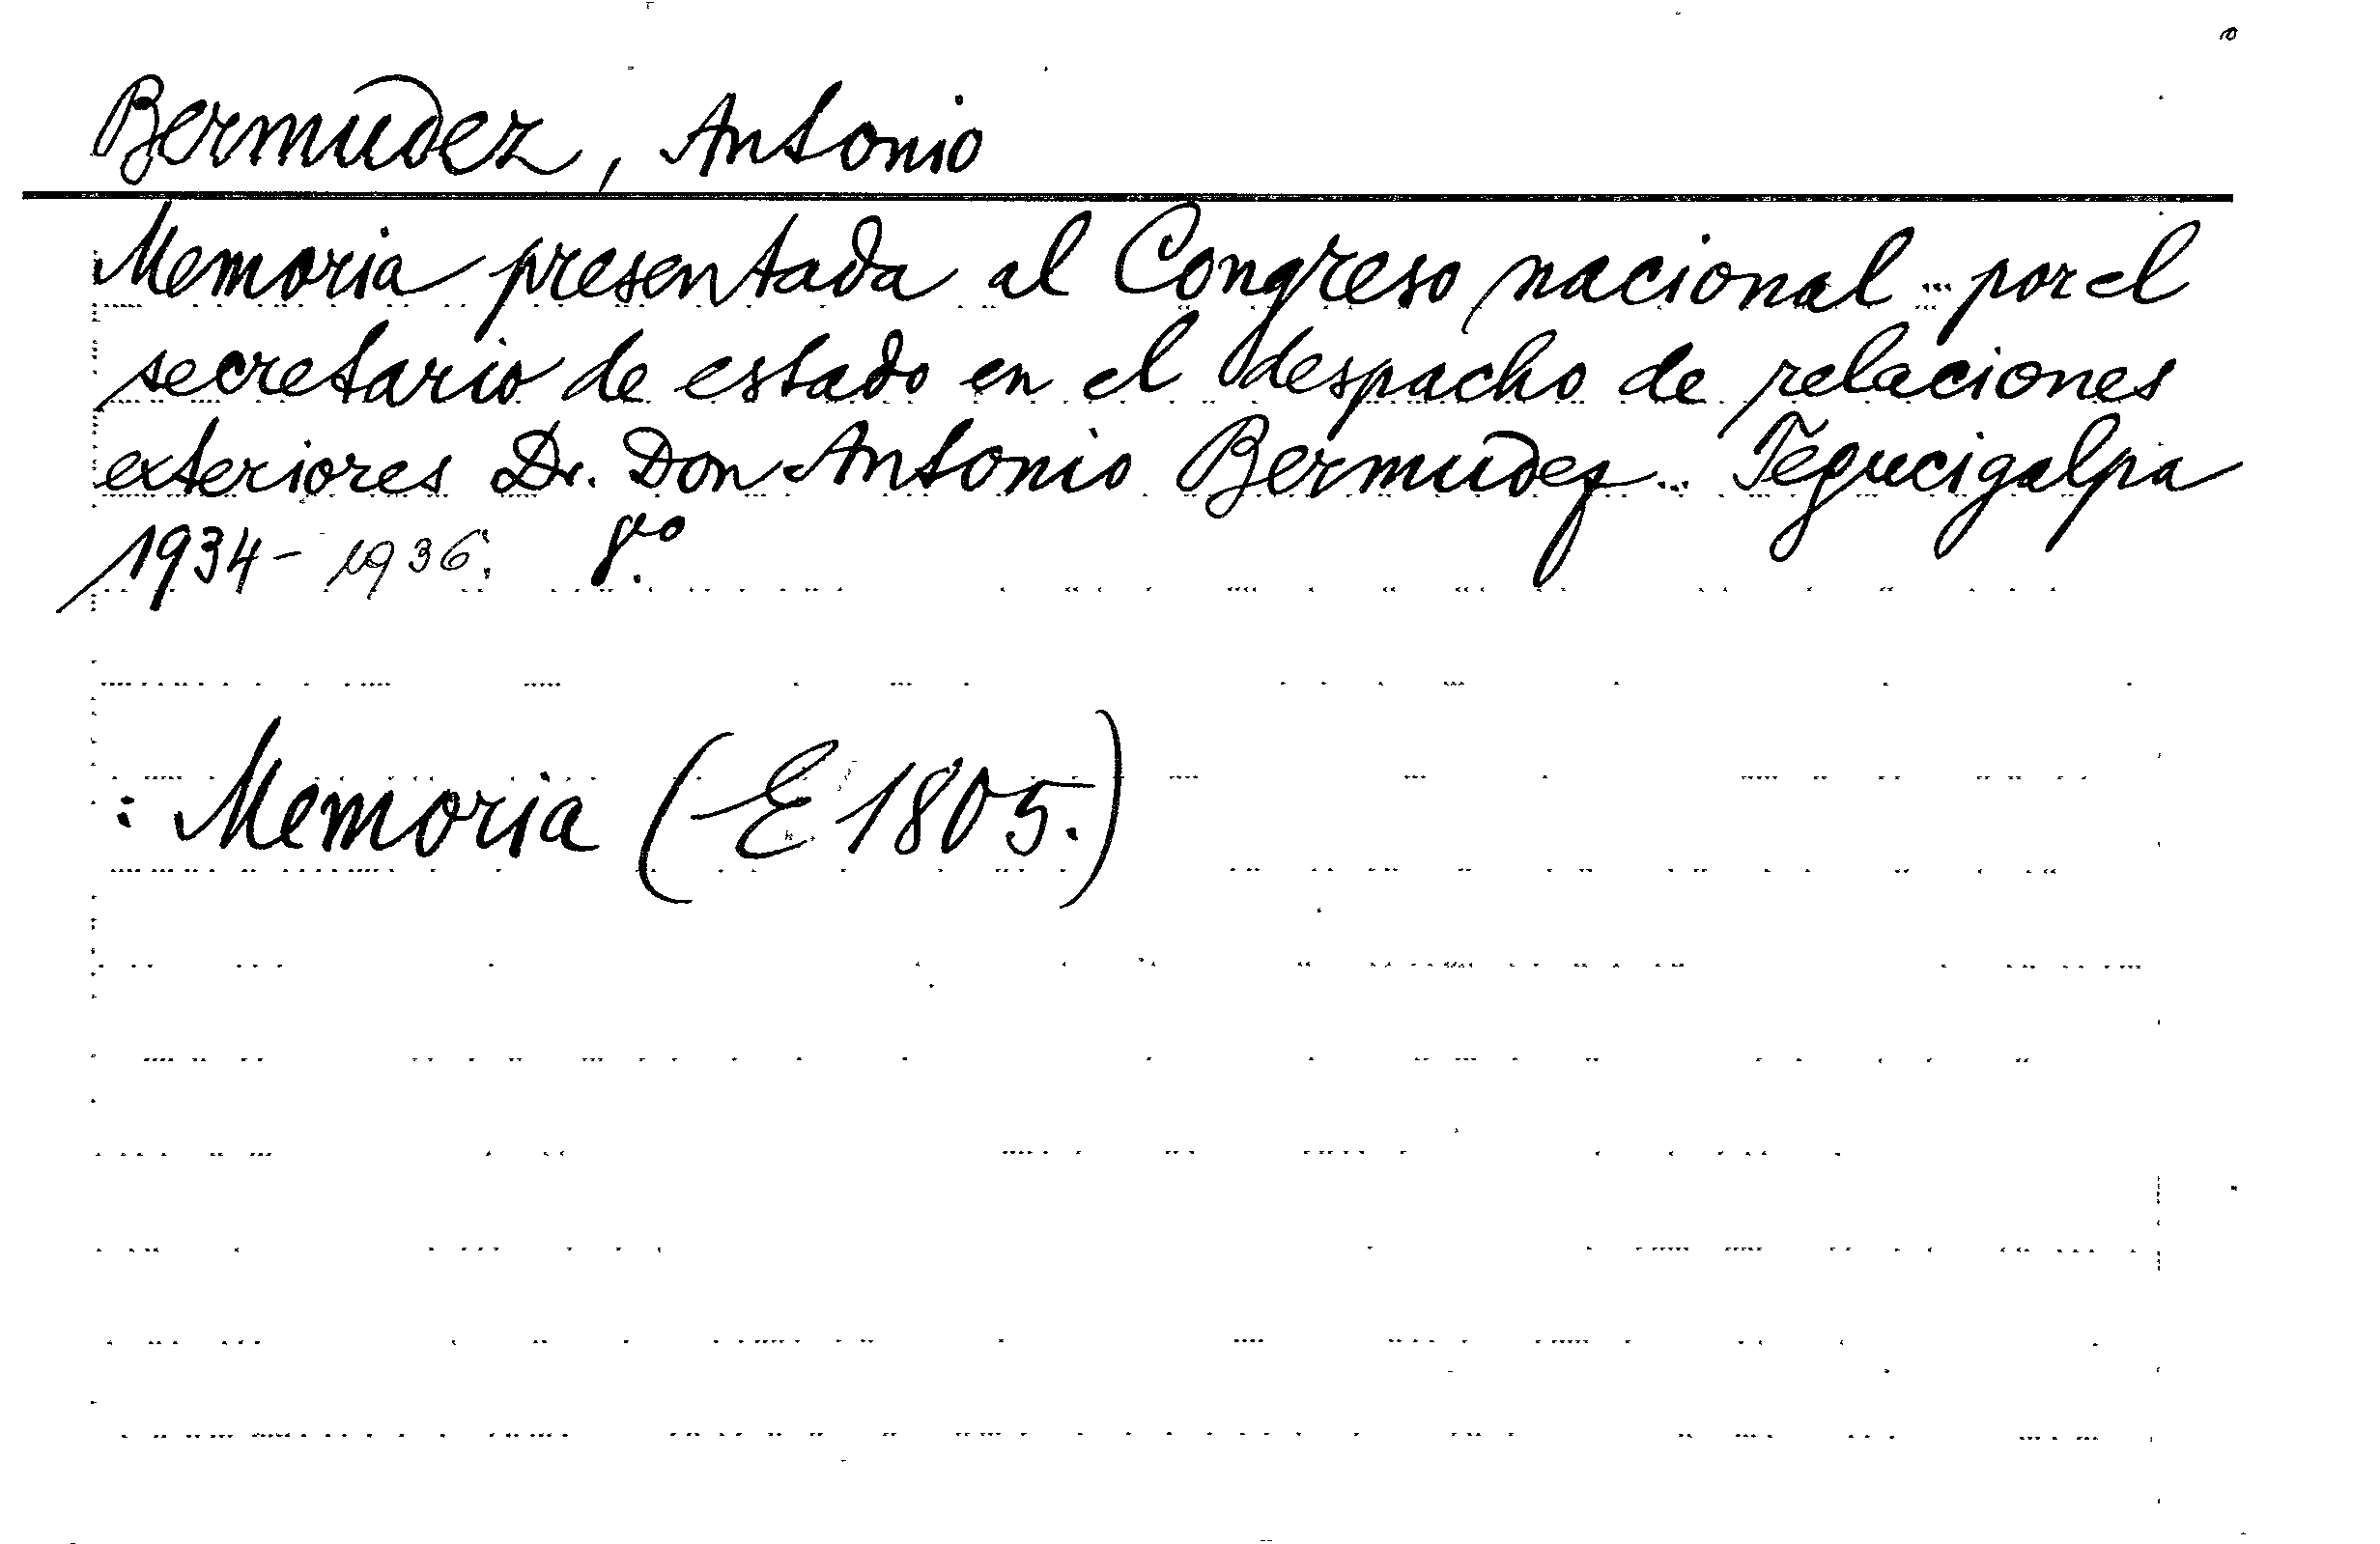 Bermudez, Antonio
Memoria presentada al Congreso nacional ... por el
secretario de estado en el despacho de relaciones
exteriores Dr. Don Antonio Bermudez ... Tegucigalpa
1934 - 1936. 8.vo
: Memoria (E 1805.)